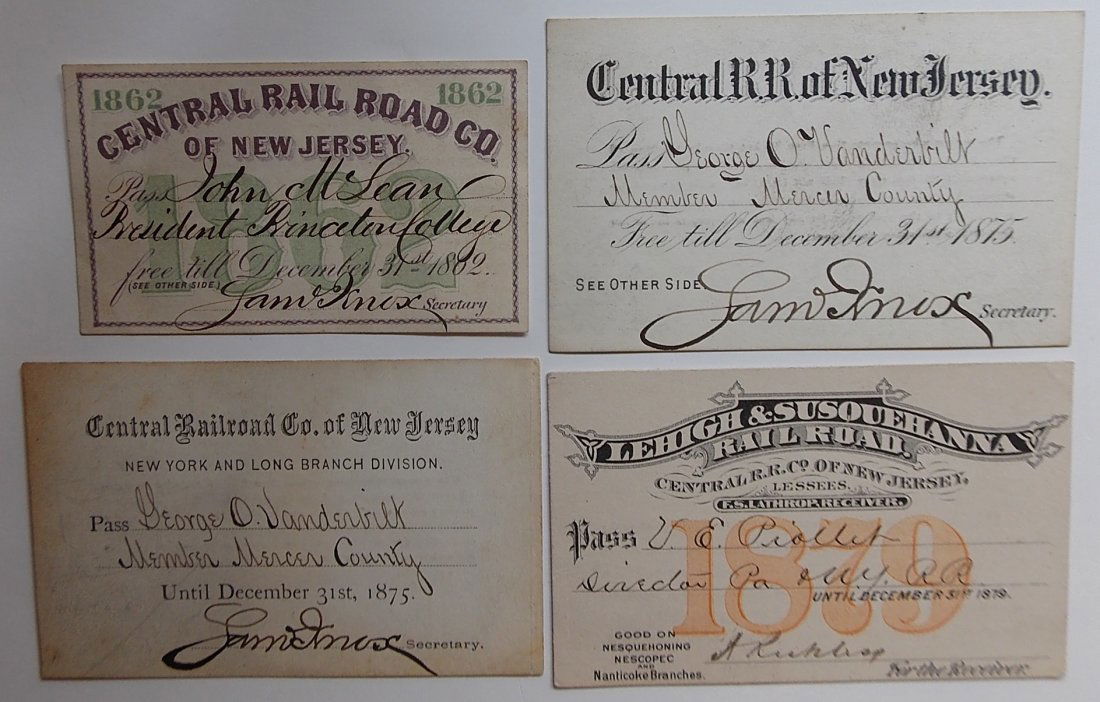 1862 1862
CENTRAL RAIL ROAD CO.
OF NEW JERSEY.
1862
Pass John McLean
President Princeton College
free till December 31st 1862.
(SEE OTHER SIDE.)
Saml Knox Secretary
Central R.R. of New Jersey.
Pass George O. Vanderbilt
Member Mercer County
Free till December 31st 1875.
SEE OTHER SIDE
Saml Knox Secretary.
Central Railroad Co. of New Jersey
NEW YORK AND LONG BRANCH DIVISION.
Pass George O. Vanderbilt
Member Mercer County
Until December 31st, 1875.
Saml Knox Secretary.
LEHIGH & SUSQUEHANNA
RAIL ROAD,
CENTRAL R.R. CO OF NEW JERSEY,
LESSEES.
F.S. LATHROP, RECEIVER.
1879
Pass V. E. Piollet
Director Pa & N.Y. RR
UNTIL DECEMBER 31ST 1879.
GOOD ON
NESQUEHONING
NESCOPEC
AND
Nanticoke Branches.
For the Receiver.